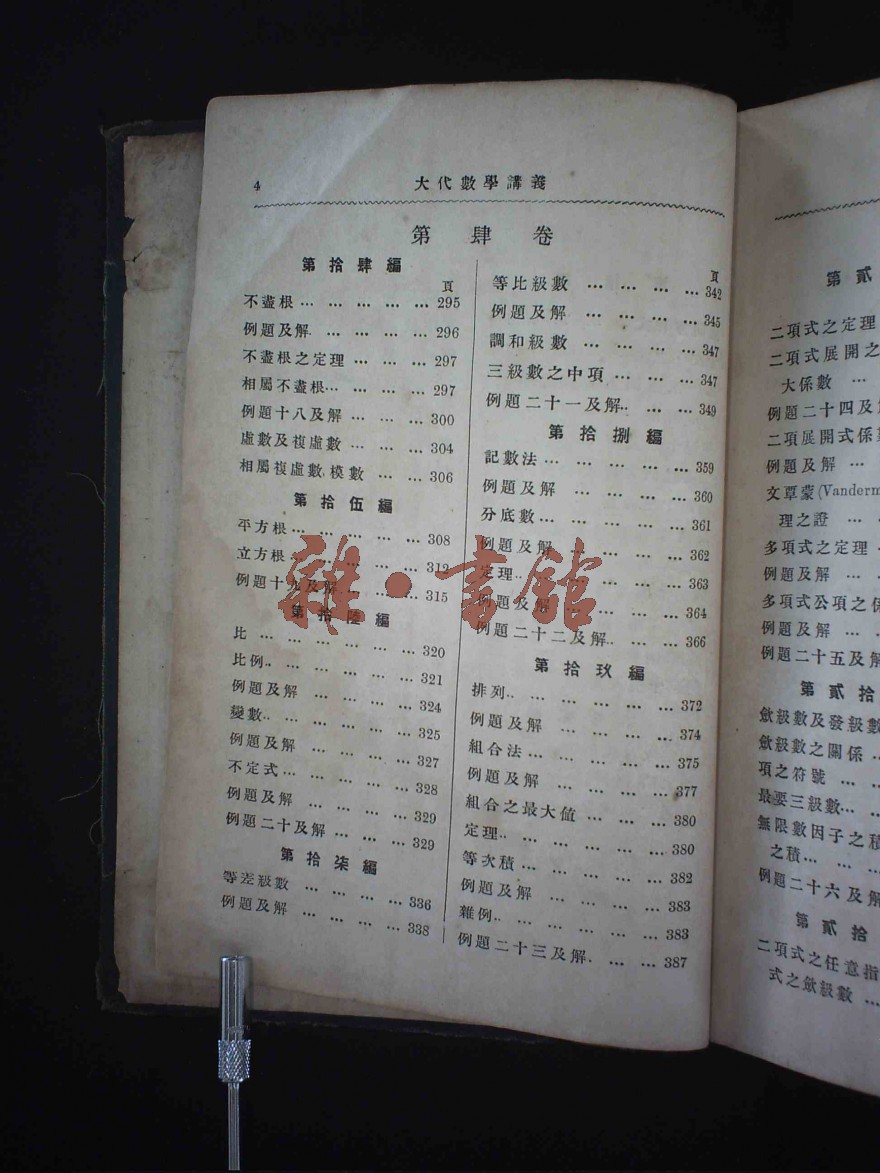 4
大代數學講義
第肆卷
第拾肆編
頁
不盡根 … … … … … 295
例題及解 … … … … 296
不盡根之定理 … … … 297
相屬不盡根… … … … 297
例題十八及解 … … … 300
虛數及複虛數 … … … 304
相屬複虛數,模數 … … 306
第拾伍編
平方根… … … … … 308
立方根… … … … … 312
例題十九及解… … … 315
第拾陸編
比 … … … … … … 320
比例… … … … … … 321
例題及解 … … … … 324
變數… … … … … … 325
例題及解 … … … … 327
不定式… … … … … 328
例題及解 … … … … 329
例題二十及解… … … 329
第拾柒編
等差級數 … … … … 336
例題及解 … … … … 338
頁
等比級數 … … … … 342
例題及解 … … … … 345
調和級數 … … … … 347
三級數之中項 … … … 347
例題二十一及解… … … 349
第拾捌編
記數法… … … … … 359
例題及解 … … … … 360
分底數… … … … … 361
例題及解 … … … … 362
定理… … … … … … 363
例題及解 … … … … 364
例題二十二及解… … … 366
第拾玖編
排列… … … … … … 372
例題及解 … … … … 374
組合法… … … … … 375
例題及解 … … … … 377
組合之最大值 … … … 380
定理… … … … … … 380
等次積… … … … … 382
例題及解 … … … … 383
雜例… … … … … … 383
例題二十三及解… … … 387
雜·書館
第貳
二項式之定理
二項式展開之
大係數 …
例題二十四及
二項展開式係
例題及解 …
文覃蒙(Vanderm
理之證 … …
多項式之定理
例題及解 … …
多項式公項之
例題及解 … …
例題二十五及解
第貳拾
斂級數及發級數
斂級數之關係 …
項之符號 … …
最要三級數… …
無限數因子之積
之積… …
例題二十六及解
第貳拾
二項式之任意指
式之斂級數 …